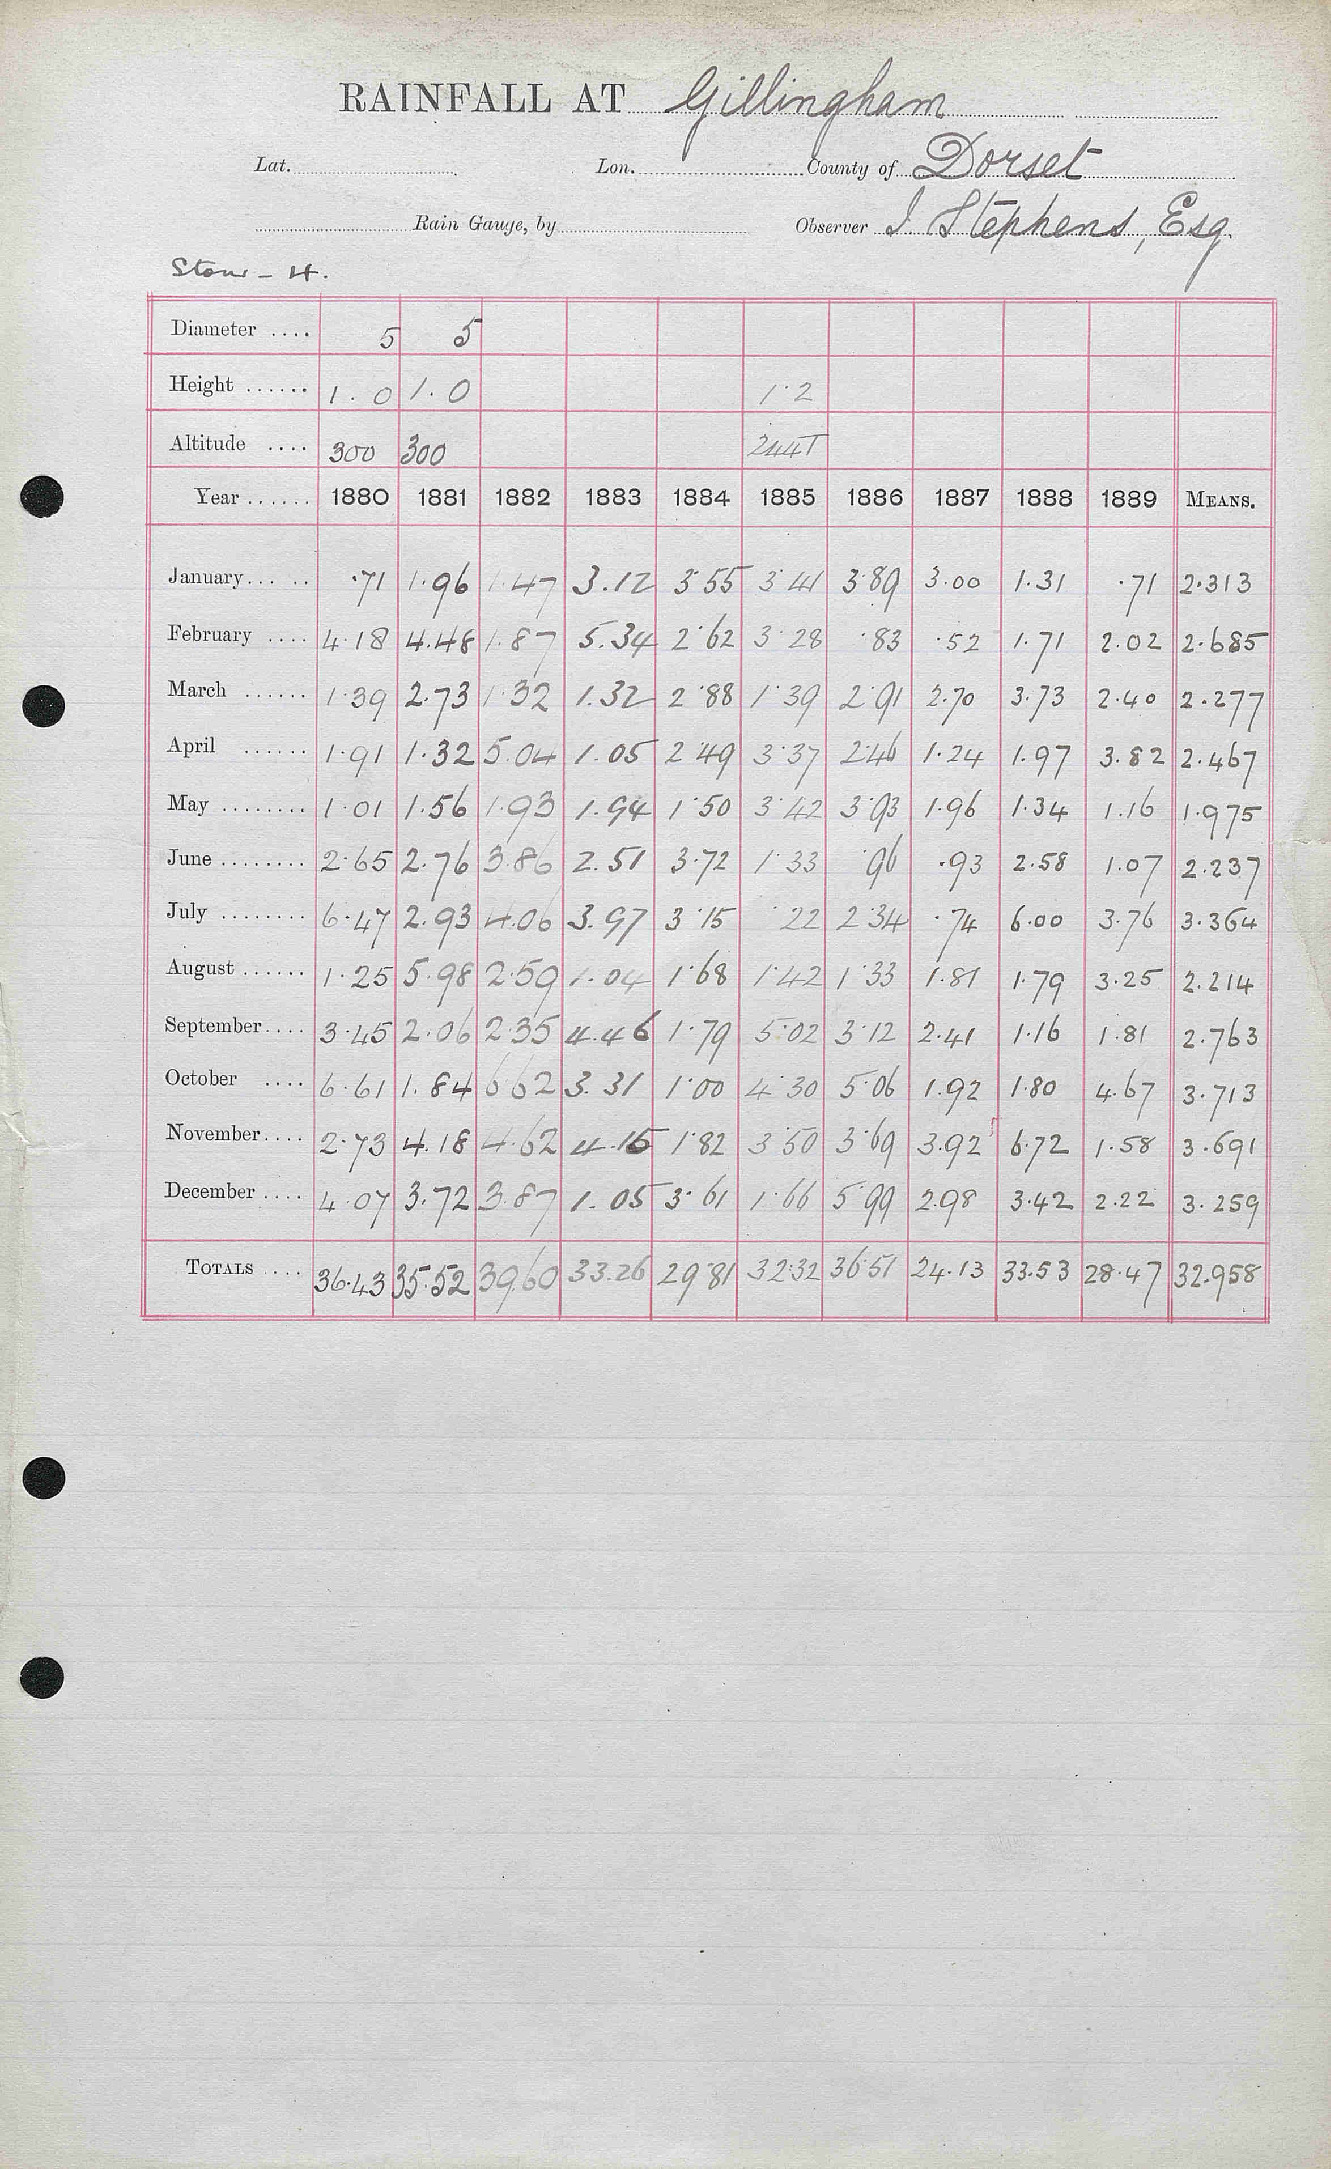 RAINFALL AT Gillingham
Lat. Lon. County of Dorset
Rain Gauge, by Observer I Stephens, Esq.
Stour - 4.
Diameter .... 5 5
Height ...... 1.0 1.0 1.2
Altitude .... 300 300 244T
Year ...... 1880 1881 1882 1883 1884 1885 1886 1887 1888 1889 MEANS.
January..... .71 1.96 1.47 3.12 3.55 3.41 3.89 3.00 1.31 .71 2.313
February .... 4.18 4.48 1.87 5.34 2.62 3.28 .83 .52 1.71 2.02 2.685
March ...... 1.39 2.73 1.32 1.32 2.88 1.39 2.91 2.70 3.73 2.40 2.277
April ...... 1.91 1.32 5.04 1.05 2.49 3.37 2.46 1.24 1.97 3.82 2.467
May ........ 1.01 1.56 1.93 1.94 1.50 3.42 3.93 1.96 1.34 1.16 1.975
June ........ 2.65 2.76 3.86 2.51 3.72 1.33 .96 .93 2.58 1.07 2.237
July ........ 6.47 2.93 4.06 3.97 3.15 .22 2.34 .74 6.00 3.76 3.364
August ...... 1.25 5.98 2.59 1.04 1.68 1.42 1.33 1.81 1.79 3.25 2.214
September.... 3.45 2.06 2.35 4.46 1.79 5.02 3.12 2.41 1.16 1.81 2.763
October .... 6.61 1.84 6.62 3.31 1.00 4.30 5.06 1.92 1.80 4.67 3.713
November.... 2.73 4.18 4.62 4.15 1.82 3.50 3.69 3.92 6.72 1.58 3.691
December .... 4.07 3.72 3.87 1.05 3.61 1.66 5.99 2.98 3.42 2.22 3.259
TOTALS .... 36.43 35.52 39.60 33.26 29.81 32.32 36.51 24.13 33.53 28.47 32.958